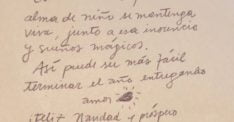 alma de niño se mantenga
viva, junto a esa inocencia
y sueños mágicos.
Así puede ser más fácil
terminar el año entregando
amor
¡Feliz Navidad y próspero